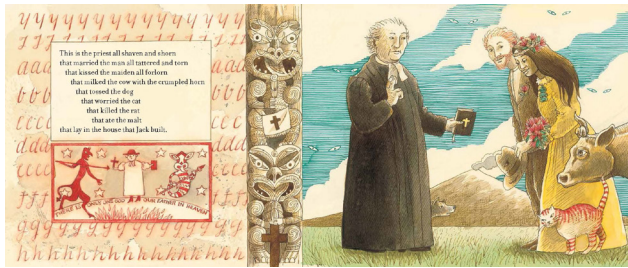 This is the priest all shaven and shorn
that married the man all tattered and torn
that kissed the maiden all forlorn
that milked the cow with the crumpled horn
that tossed the dog
that worried the cat
that killed the rat
that ate the malt
that lay in the house that Jack built.
THERE IS ONE GOD OUR FATHER IN HEAVEN